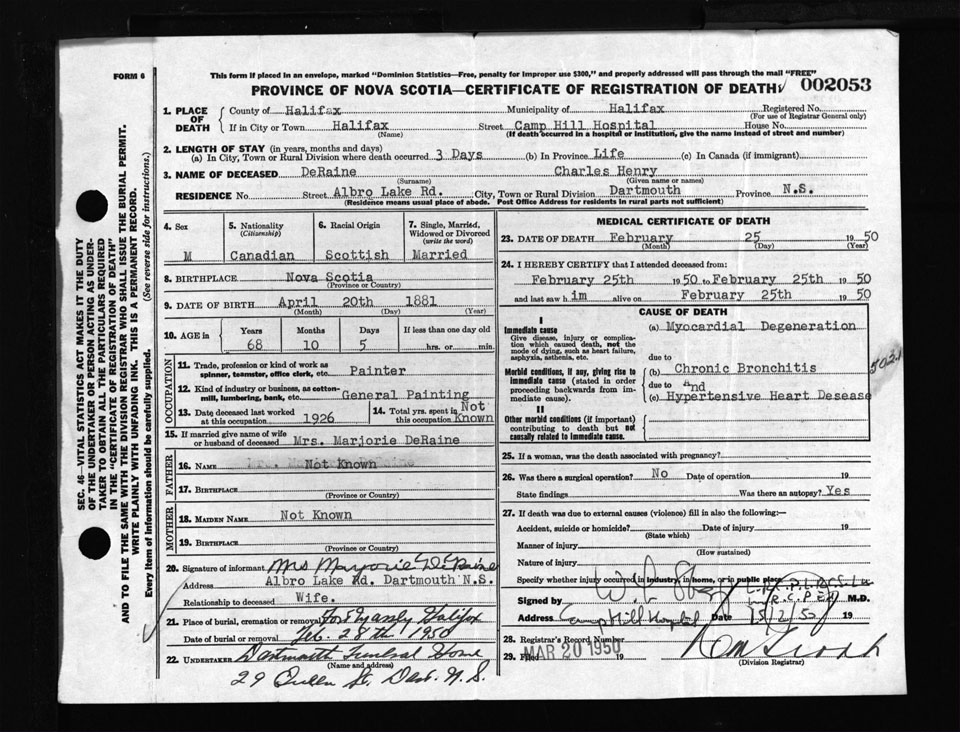 FORM 6
This form if placed in an envelope, marked "Dominion Statistics—Free, penalty for improper use $300," and properly addressed will pass through the mail "FREE"
PROVINCE OF NOVA SCOTIA—CERTIFICATE OF REGISTRATION OF DEATH
002053
1. PLACE OF DEATH
County of Halifax Municipality of Halifax Registered No.
(For use of Registrar General only)
If in City or Town Halifax Street Camp Hill Hospital House No.
(Name) (If death occurred in a hospital or institution, give the name instead of street and number)
2. LENGTH OF STAY (in years, months and days)
(a) In City, Town or Rural Division where death occurred 3 Days (b) In Province Life (c) In Canada (if immigrant)
3. NAME OF DECEASED DeRaine Charles Henry
(Surname) (Given name or names)
RESIDENCE No. Street Albro Lake Rd. City, Town or Rural Division Dartmouth Province N.S.
(Residence means usual place of abode. Post Office Address for residents in rural parts not sufficient)
4. Sex
M
5. Nationality
(Citizenship)
Canadian
6. Racial Origin
Scottish
7. Single, Married, Widowed or Divorced
(write the word)
Married
8. BIRTHPLACE Nova Scotia
(Province or Country)
9. DATE OF BIRTH April 20th 1881
(Month) (Day) (Year)
10. AGE in
Years Months Days If less than one day old
68 10 5 hrs. or min.
OCCUPATION
11. Trade, profession or kind of work as spinner, teamster, office clerk, etc. Painter
12. Kind of industry or business, as cotton-mill, lumbering, bank, etc. General Painting
13. Date deceased last worked at this occupation 1926
14. Total yrs. spent in this occupation Not Known
15. If married give name of wife or husband of deceased Mrs. Marjorie DeRaine
FATHER
16. NAME Not Known
17. BIRTHPLACE
(Province or Country)
MOTHER
18. MAIDEN NAME Not Known
19. BIRTHPLACE
(Province or Country)
20. Signature of informant Mrs Marjorie DeRaine
Address Albro Lake Rd. Dartmouth N.S.
Relationship to deceased Wife.
21. Place of burial, cremation or removal Fort Massey Halifax
Date of burial or removal Feb. 28th 1950
22. UNDERTAKER Dartmouth Funeral Home
(Name and address)
29 Queen St. Dart. N.S.
MEDICAL CERTIFICATE OF DEATH
23. DATE OF DEATH February 25 1950
(Month) (Day) (Year)
24. I HEREBY CERTIFY that I attended deceased from:
February 25th 1950 to February 25th 1950
and last saw him alive on February 25th 1950
CAUSE OF DEATH
I
Immediate cause
Give disease, injury or complication which caused death, not the mode of dying, such as heart failure, asphyxia, asthenia, etc.
(a) Myocardial Degeneration
due to
Morbid conditions, if any, giving rise to immediate cause (stated in order proceeding backwards from immediate cause).
(b) Chronic Bronchitis
due to and
(c) Hypertensive Heart Desease
II
Other morbid conditions (if important) contributing to death but not causally related to immediate cause.
25. If a woman, was the death associated with pregnancy?
26. Was there a surgical operation? No Date of operation 19
State findings Was there an autopsy? Yes
27. If death was due to external causes (violence) fill in also the following:
Accident, suicide or homicide? Date of injury 19
(State which)
Manner of injury
(How sustained)
Nature of injury
Specify whether injury occurred in industry, in home, or in public place
Signed by M.D.
Address Camp Hill Hospital Date
28. Registrar's Record Number
29. Filed MAR 20 1950 19
(Division Registrar)
SEC. 46—VITAL STATISTICS ACT MAKES IT THE DUTY
OF THE UNDERTAKER OR PERSON ACTING AS UNDER-
TAKER TO OBTAIN ALL THE PARTICULARS REQUIRED
IN THE "CERTIFICATE OF REGISTRATION OF DEATH"
AND TO FILE THE SAME WITH THE DIVISION REGISTRAR WHO SHALL ISSUE THE BURIAL PERMIT.
WRITE PLAINLY WITH UNFADING INK. THIS IS A PERMANENT RECORD.
Every item of Information should be carefully supplied. (See reverse side for instructions.)